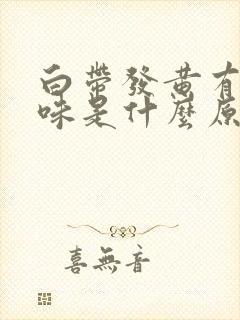 白帶發黃有
味是什麼原
喜無音